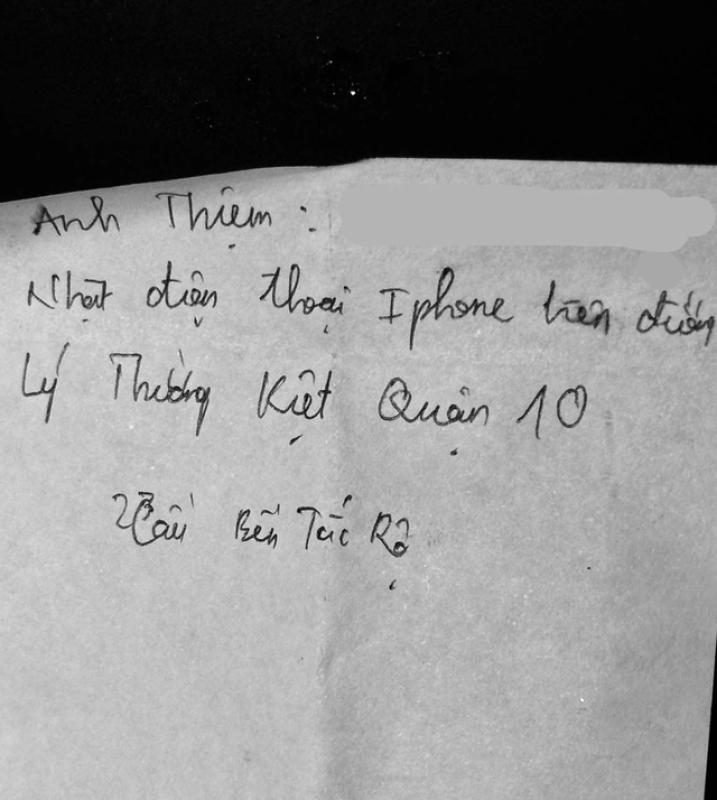 Anh Thiệm :
Nhặt điện thoại Iphone trên đường
Lý Thường Kiệt Quận 10
Bến Tắc Rỗ